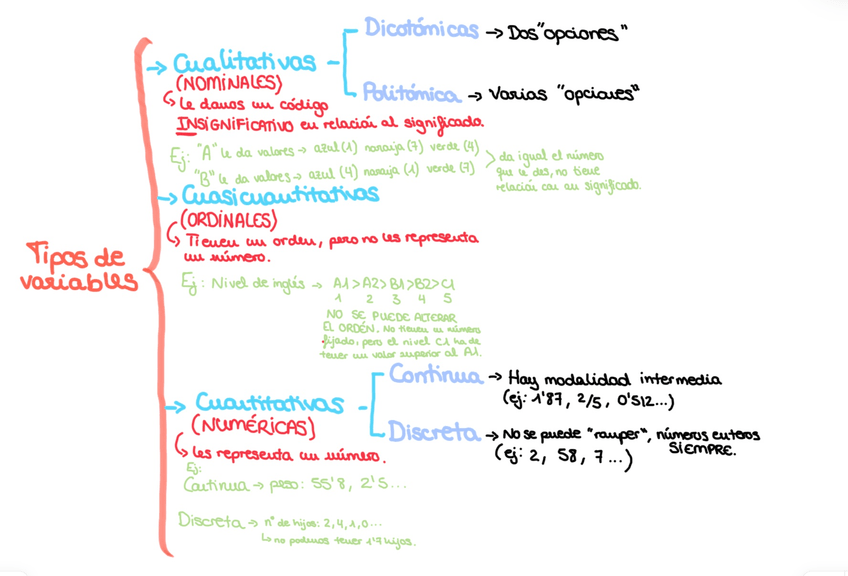 Tipos de
variables
→ Cualitativas
(NOMINALES)
↳ Le damos un código
INSIGNIFICATIVO en relación al significado.
Dicotómicas → Dos "opciones"
Politómica → Varias "opciones"
Ej: "A" le da valores → azul (1) naranja (7) verde (4)
"B" le da valores → azul (4) naranja (1) verde (7)
da igual el número
que le des, no tiene
relación con su significado.
→ Cuasicuantitativas
(ORDINALES)
↳ Tienen un orden, pero no les representa
un número.
Ej: Nivel de inglés → A1 > A2 > B1 > B2 > C1
1 2 3 4 5
NO SE PUEDE ALTERAR
EL ORDEN. No tienen un número
fijado, pero el nivel C1 ha de
tener un valor superior al A1.
→ Cuantitativas
(NUMÉRICAS)
↳ Les representa un número.
Continua → Hay modalidad intermedia
(ej: 1'87, 2/5, 0'512...)
Discreta → No se puede "romper", números enteros
SIEMPRE.
(ej: 2, 58, 7...)
Ej:
Continua → peso: 55'8, 2'5...
Discreta → nº de hijos: 2, 4, 1, 0...
↳ no podemos tener 1'7 hijos.